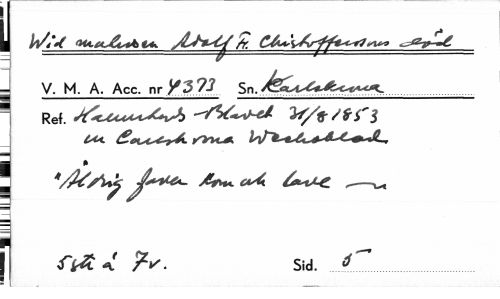 Wid matrosen Adolf Fr. Christoffersons död
V. M. A. Acc. nr 4373 Sn. Karlskrona
Ref. Bladet 31/8 1853
ur Carlskrona Weckoblad
"Aldrig faran kom och lave
5 str á 7 v. Sid. 5